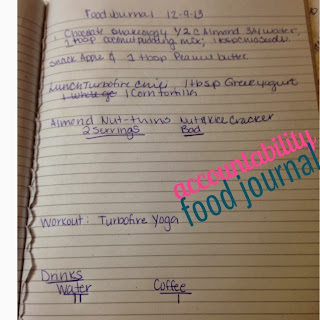 Food Journal 12-9-13
Chocolate Shakeology 1/2 c Almond 3/4 water,
1 tbsp coconut pudding mix, 1 tbsp chia seeds.
Snack Apple & 1 tbsp Peanut butter.
Lunch Turbofire Chili, 1 tbsp Greek yogurt
1 Corn tortilla
Almond Nut-thins Nut & Rice Cracker
2 Servings Bad
accountability
food journal
Workout: Turbofire Yoga
Drinks
Water Coffee